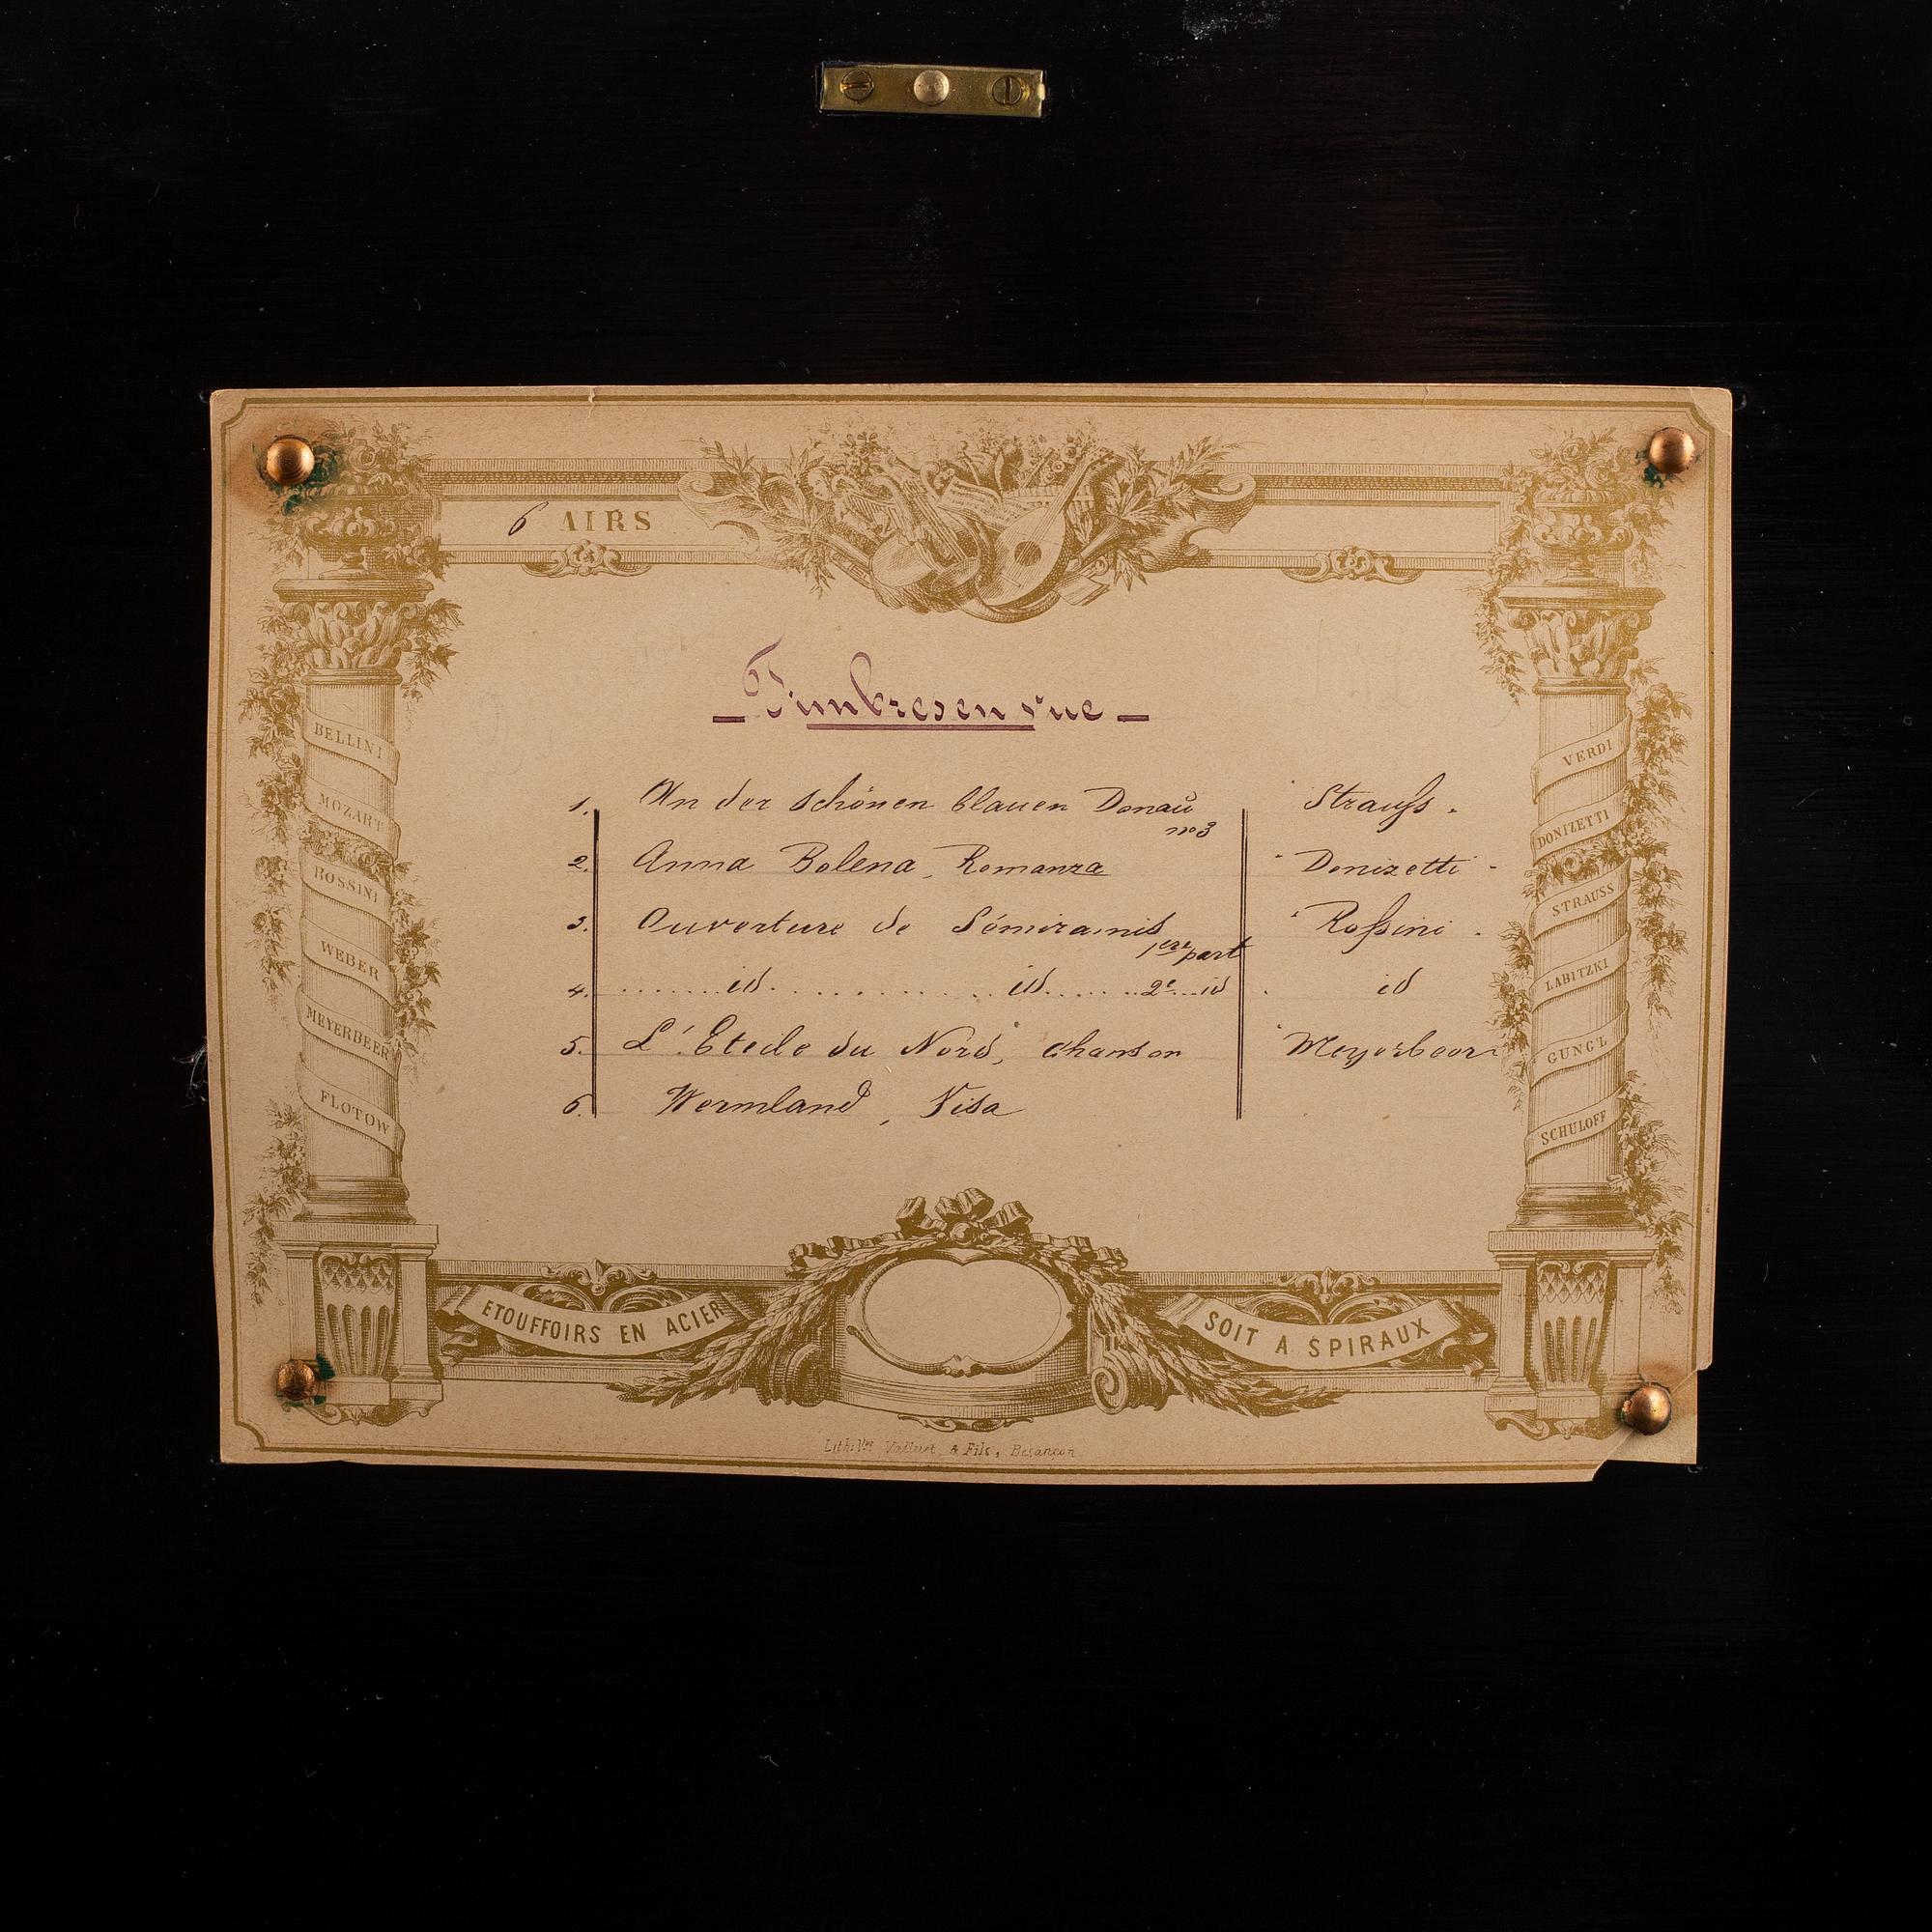 6 AIRS
Timbres en vue
1. An der schönen blauen Donau Strauss.
no 3
2. Anna Bolena, Romanza Donizetti
3. Ouverture de Sémiramis Rossini
1ère part
4. id id 2e id id
5. L'Etoile du Nord, Chanson Meyerbeer
6. Wermland, Visa
BELLINI
MOZART
ROSSINI
WEBER
MEYERBEER
FLOTOW
VERDI
DONIZETTI
STRAUSS
LABITZKI
GUNG'L
SCHULOFF
ETOUFFOIRS EN ACIER
SOIT A SPIRAUX
Lith. Vve & Fils, Besançon